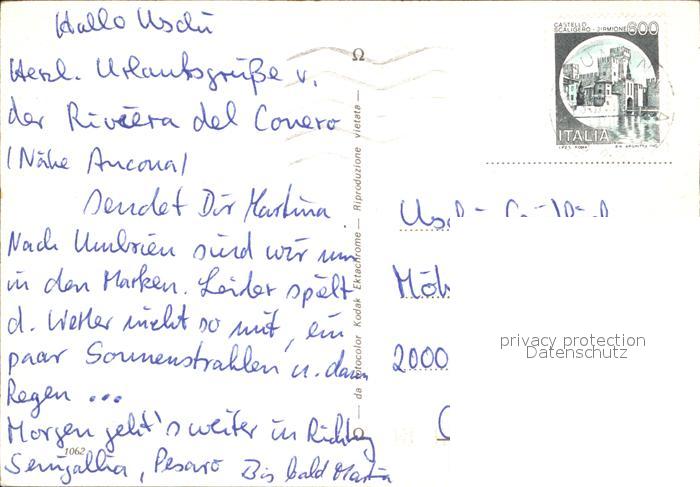 Hallo Uschi
Herzl. Urlaubsgrüße v.
der Riviera del Conero
(Nähe Ancona)
sendet Dir Martina
Nach Umbrien sind wir nun
in den Marken. Leider spielt
d. Wetter nicht so mit, ein
paar Sonnenstrahlen u. dann
Regen ...
Morgen geht's weiter in Richtung
Senigallia, Pesaro Bis bald Martina
1062
Ω
da fotocolor Kodak Ektachrome — Riproduzione vietata —
Ω
CASTELLO
SCALIGERO - SIRMIONE
600
ITALIA
Uschi
2000
privacy protection
Datenschutz